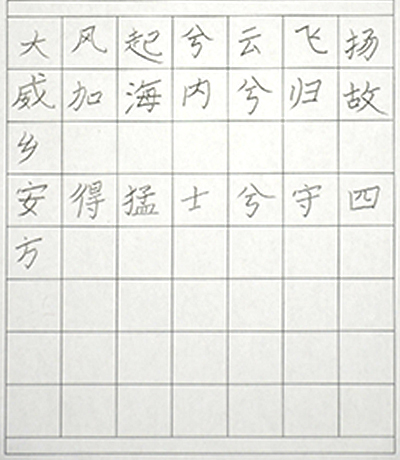 大风起兮云飞扬
威加海内兮归故
乡
安得猛士兮守四
方